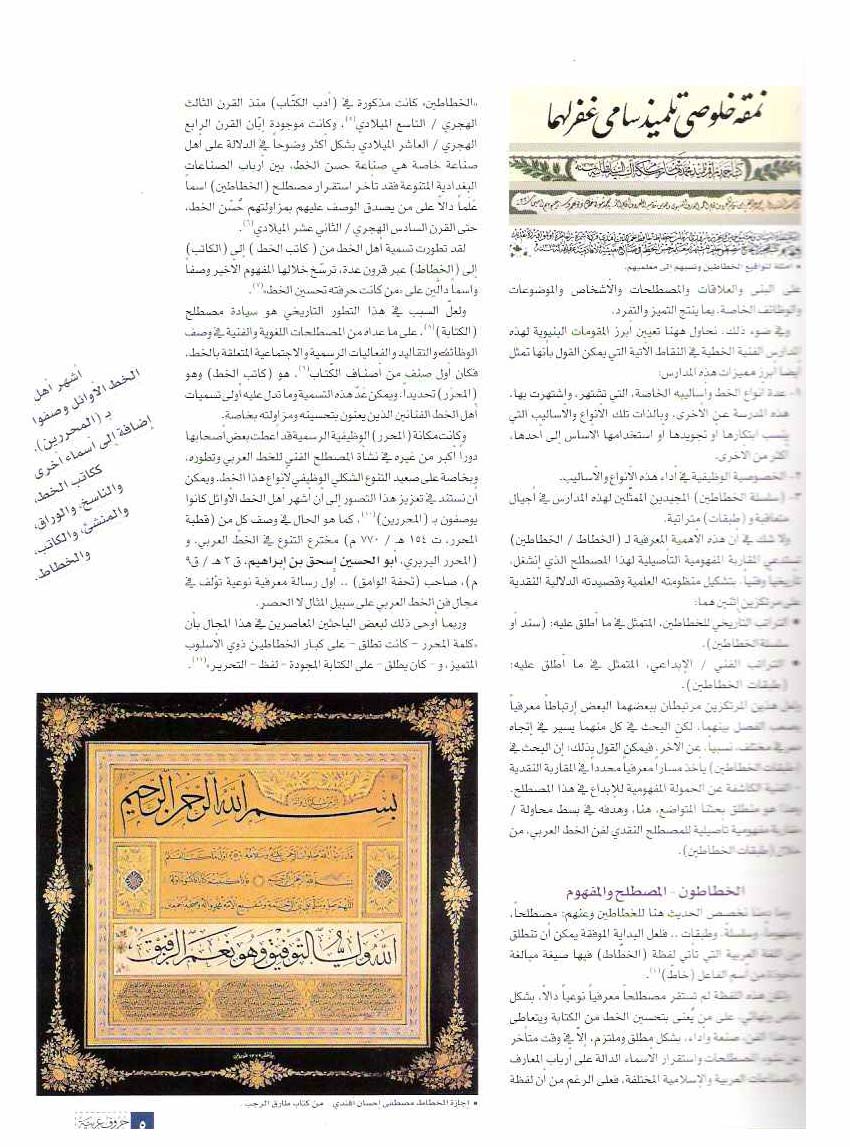 نمقه خلوصي تلميذ سامي غفر لهما
• امثلة لتواقيع الخطاطين ونسبهم الى معلميهم.
على البنى والعلاقات والمصطلحات والأشخاص والموضوعات
والوظائف الخاصة، بما ينتج التميز والتفرد.
وفي ضوء ذلك، نحاول ههنا تعيين أبرز المقومات البنيوية لهذه
المدارس الفنية الخطية في النقاط الآتية التي يمكن القول بأنها تمثل
أيضا أبرز مميزات هذه المدارس:
١- عدة أنواع الخط وأساليبه الخاصة، التي تشتهر، واشتهرت بها،
هذه المدرسة عن الأخرى، وبالذات تلك الأنواع والأساليب التي
ينسب ابتكارها أو تجويدها أو استخدامها الأساس إلى أحدها،
أكثر من الأخرى.
٢- الخصوصية الوظيفية في أداء هذه الأنواع والأساليب.
٣- (سلسلة الخطاطين) المجيدين الممثّلين لهذه المدارس في أجيال
متعاقبة و(طبقات) متراتبة.
ولا شك في أن هذه الأهمية المعرفية لـ (الخطاط / الخطاطين)
تستدعي المقاربة المفهومية التأصيلية لهذا المصطلح الذي إنشغل،
تاريخيا وفنيا، بتشكيل منظومته العلمية وقصيدته الدلالية النقدية
على مرتكزين إثنين هما:
• التراتب التاريخي للخطاطين، المتمثل في ما أطلق عليه: (سند أو
سلسلة الخطاطين).
• التراتب الفني / الإبداعي، المتمثل في ما أطلق عليه:
(طبقات الخطاطين).
ولعل هذين المرتكزين مرتبطان ببعضهما البعض إرتباطاً معرفياً
يصعب الفصل بينهما، لكن البحث في كل منهما يسير في إتجاه
مختلف، نسبياً، عن الآخر، فيمكن القول بذلك: إن البحث في
(طبقات الخطاطين) يأخذ مسارا معرفيا محددا في المقاربة النقدية
الفنية الكاشفة عن الحمولة المفهومية للإبداع في هذا المصطلح.
وهذا هو منطلق بحثنا المتواضع، هنا، وهدفه في بسط محاولة /
مقاربة مفهومية تأصيلية للمصطلح النقدي لفن الخط العربي، من
خلال (طبقات الخطاطين).
الخطاطون - المصطلح والمفهوم
وما دمنا نخصص الحديث هنا للخطاطين وعنهم: مصطلحاً،
ومفهوماً، وسلسلة، وطبقات .. فلعل البداية الموفقة يمكن أن تنطلق
من اللغة العربية التي تأتي لفظة (الخطّاط) فيها صيغة مبالغة
من أسم الفاعل (خاطّ)(٤).
ولكن هذه اللفظة لم تستقر مصطلحاً معرفياً نوعياً دالاً، بشكل
على من يُعنى بتحسين الخط من الكتابة ويتعاطى
هذا الفن، صنعة وأداء، بشكل مطلق وملتزم، إلاّ في وقت متأخر
المصطلحات واستقرار الأسماء الدالة على أرباب المعارف
والصناعات العربية والإسلامية المختلفة، فعلى الرغم من أن لفظة
«الخطاطين» كانت مذكورة في (أدب الكتّاب) منذ القرن الثالث
الهجري / التاسع الميلادي(٥)، وكانت موجودة إبّان القرن الرابع
الهجري / العاشر الميلادي بشكل أكثر وضوحاً في الدلالة على أهل
صناعة خاصة هي صناعة حسن الخط، بين أرباب الصناعات
البغدادية المتنوعة فقد تأخر استقرار مصطلح (الخطاطين) اسماً
علَماً دالاً على من يصدق الوصف عليهم بمزاولتهم حُسْن الخط،
حتى القرن السادس الهجري / الثاني عشر الميلادي(٦).
لقد تطورت تسمية أهل الخط من ( كاتب الخط ) إلى (الكاتب)
إلى (الخطاط) عبر قرون عدة، ترسّخ خلالها المفهوم الأخير وصفاً
واسماً دالّين على «من كانت حرفته تحسين الخط»(٧).
ولعلّ السبب في هذا التطور التاريخي هو سيادة مصطلح
(الكتابة)(٨)، على ما عداه من المصطلحات اللغوية والفنية في وصف
الوظائف والتقاليد والفعاليات الرسمية والاجتماعية المتعلقة بالخط،
فكان أول صنف من أصناف الكتاب(٩)، هو (كاتب الخط) وهو
(المحرّر) تحديداً، ويمكن عَدّ هذه التسمية وما تدل عليه أولى تسميات
أهل الخط الفنانين الذين يعنون بتحسينه ومزاولته بخاصة.
وكانت مكانة (المحرر) الوظيفية الرسمية قد اعطت بعض أصحابها
دوراً أكبر من غيره في نشأة المصطلح الفني للخط العربي وتطوره،
وبخاصة على صعيد التنوع الشكلي الوظيفي لأنواع هذا الخط. ويمكن
أن نستند في تعزيز هذا التصور إلى أن أشهر أهل الخط الأوائل كانوا
يوصفون بـ (المحررين)(١٠)، كما هو الحال في وصف كل من (قطبة
المحرر، ت ١٥٤ هـ / ٧٧٠ م) مخترع التنوع في الخط العربي، و
(المحرر البربري، أبو الحسين إسحق بن إبراهيم، ق٣ هـ / ق٩
م)، صاحب (تحفة الوامق) .. أول رسالة معرفية نوعية تؤلف في
مجال فن الخط العربي على سبيل المثال لا الحصر.
وربما أوحى ذلك لبعض الباحثين المعاصرين في هذا المجال بأن
«كلمة المحرر – كانت تطلق – على كبار الخطاطين ذوي الأسلوب
المتميز، و – كان يطلق – على الكتابة المجودة – لفظ – التحرير»(١١).
أشهر أهل
الخط الأوائل وصفوا
بـ (المحررين)،
إضافة إلى أسماء أخرى
ككاتب الخط،
والناسخ، والوراق،
والمنشئ، والكاتب،
والخطاط.
بسم الله الرحمن الرحيم
الله ولي التوفيق وهو نعم الرفيق
• اجازة الخطاط مصطفى احسان افندي من كتاب طارق الرجب.
حروف عربية
٥